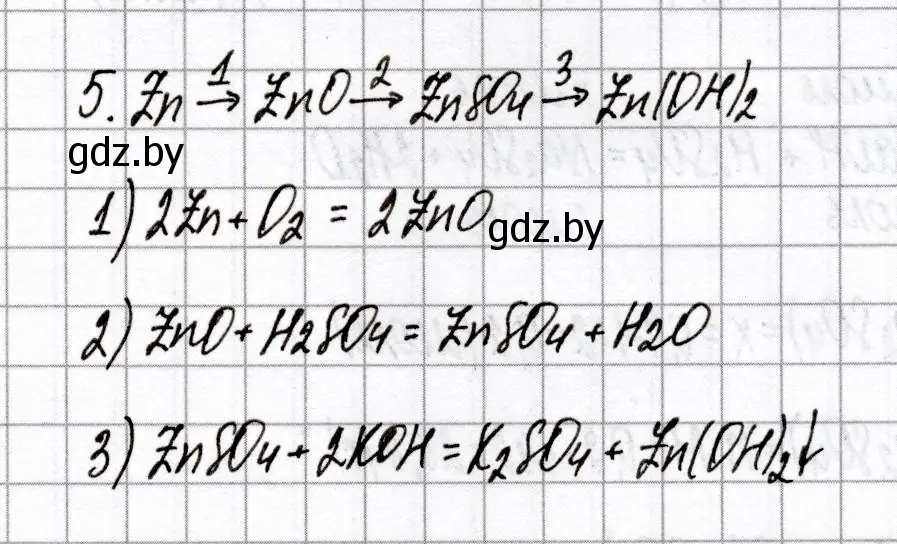 5. Zn →¹ ZnO →² ZnSO₄ →³ Zn(OH)₂
gdz.by
1) 2Zn + O₂ = 2ZnO
gdz.by
2) ZnO + H₂SO₄ = ZnSO₄ + H₂O
3) ZnSO₄ + 2KOH = K₂SO₄ + Zn(OH)₂↓